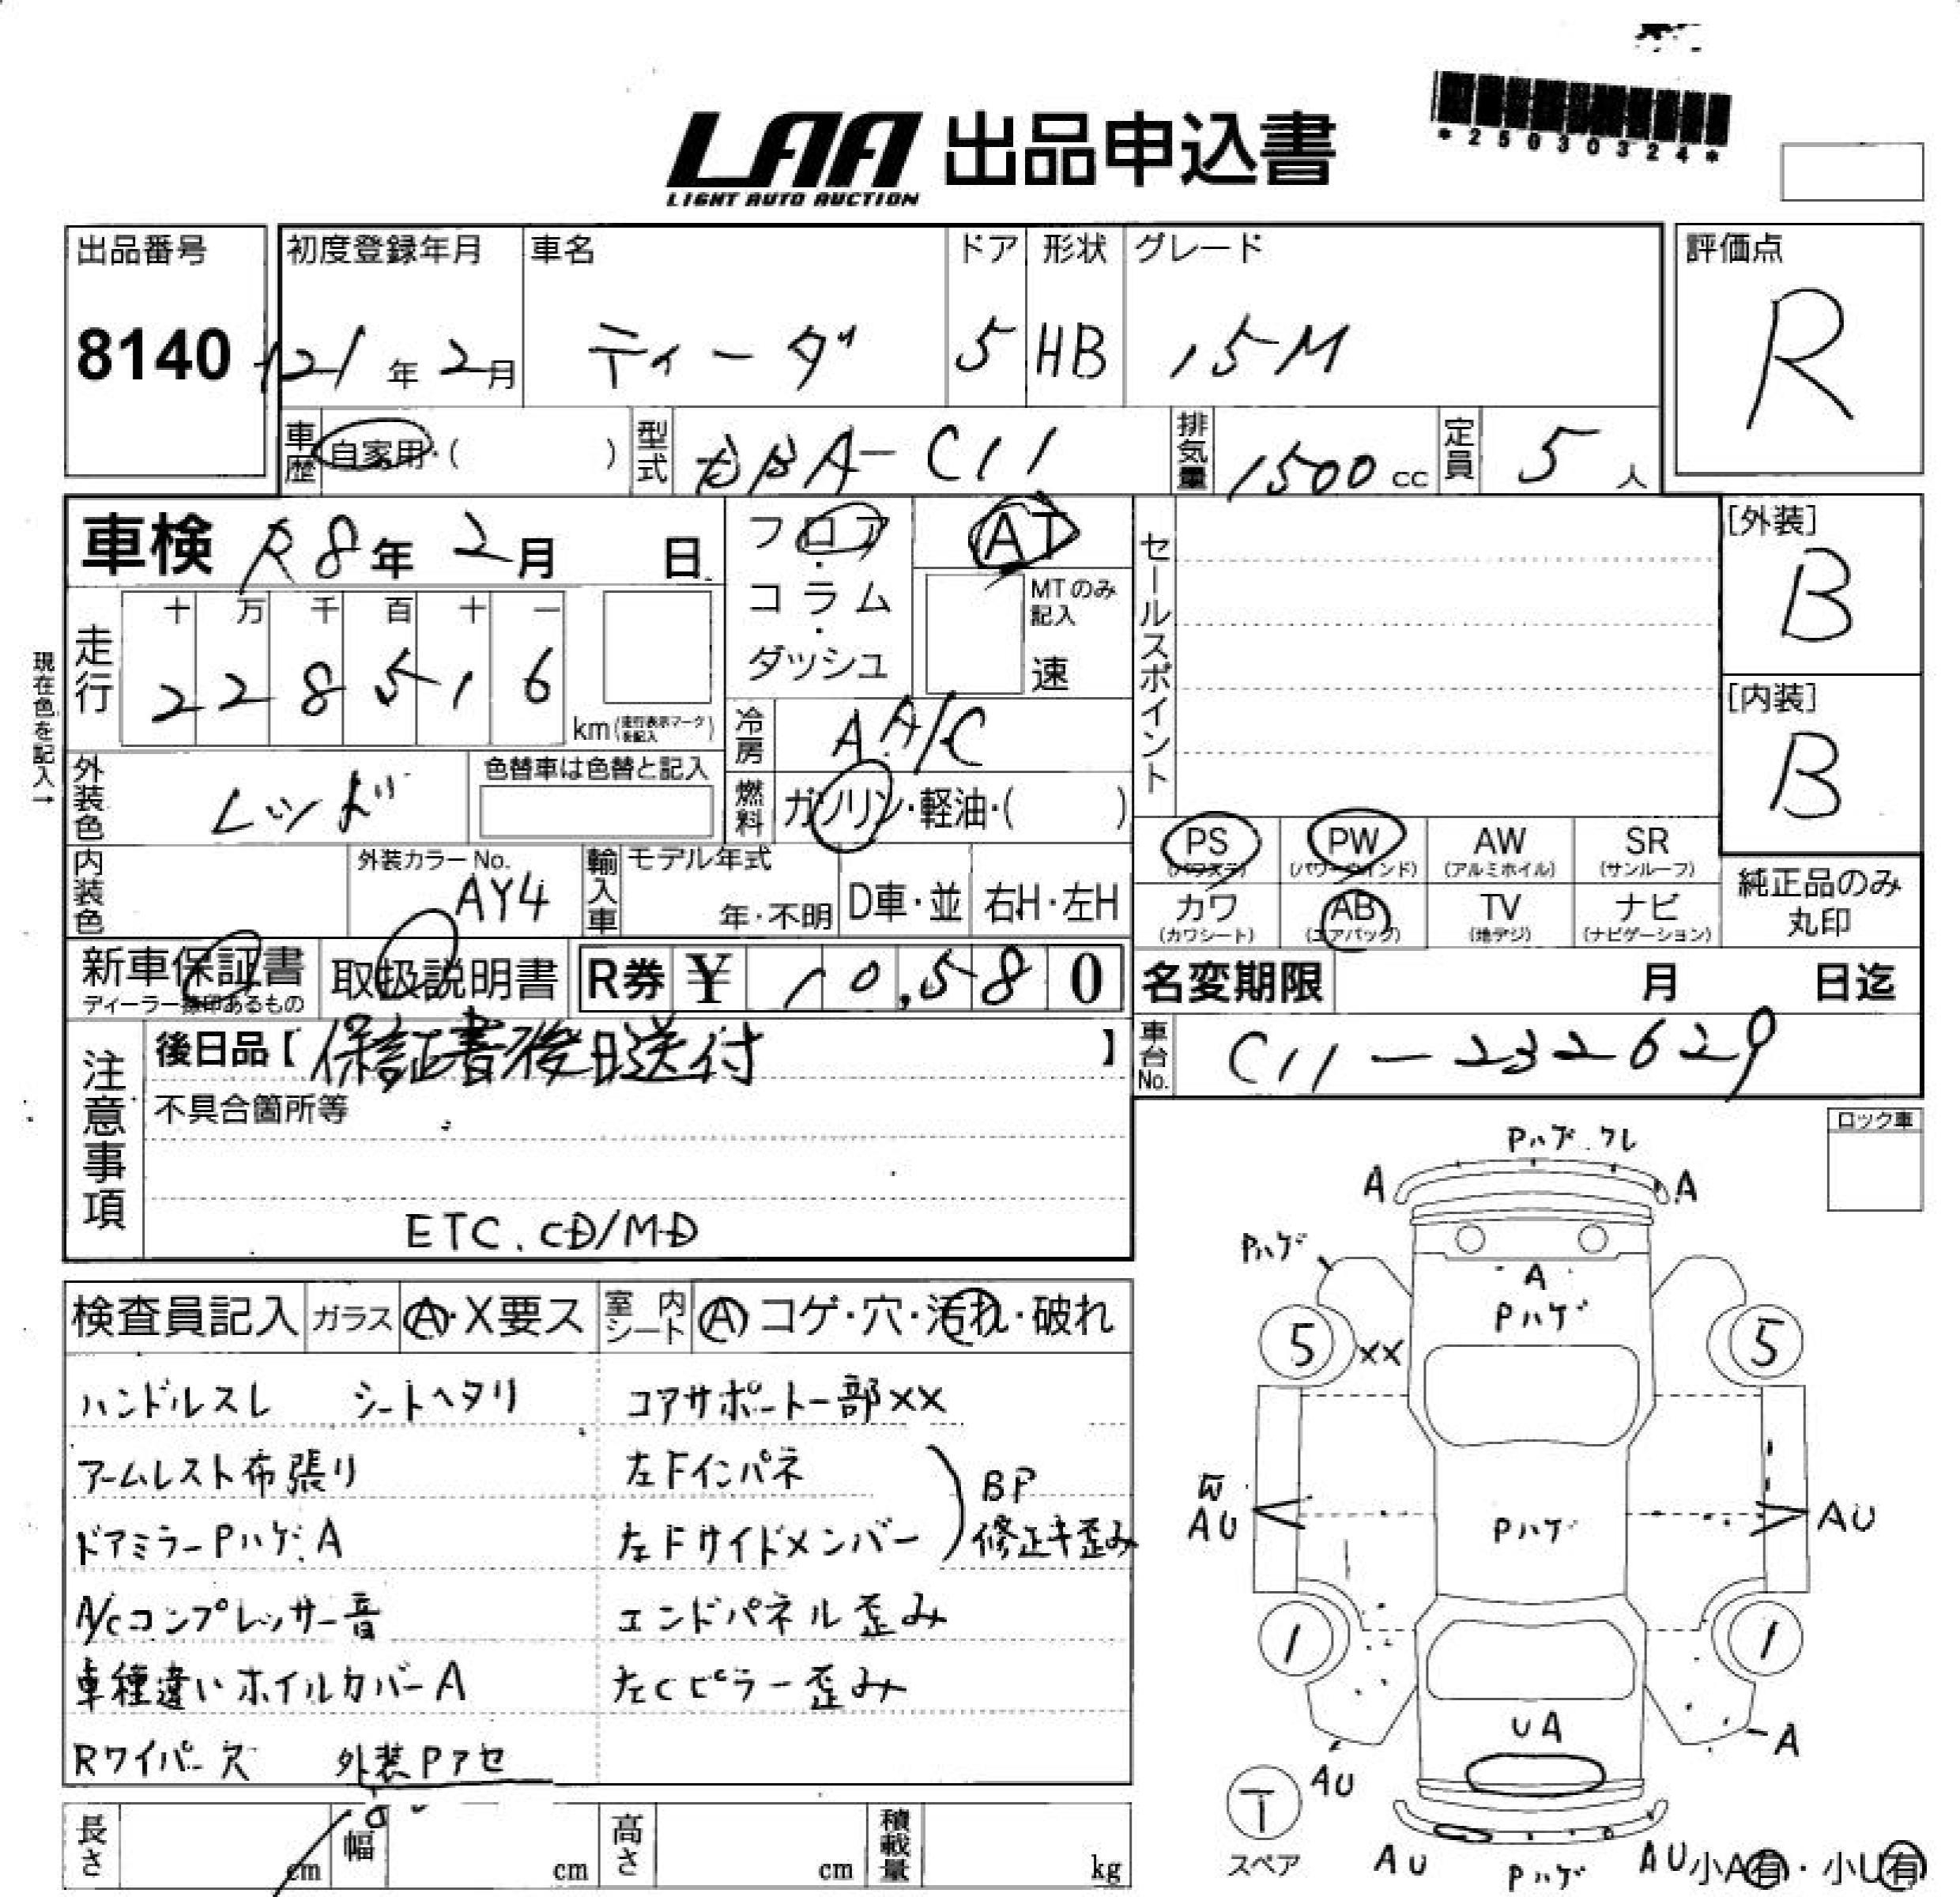 LAA 出品申込書
LIGHT AUTO AUCTION
*25030324*
出品番号
8140
初度登録年月
21年2月
車名
ティーダ
ドア
5
形状
HB
グレード
15M
評価点
R
車歴 自家用・( )
型式 DBA-C11
排気量 1500cc
定員 5人
車検 R8年2月 日
フロア・コラム・ダッシュ
AT
MTのみ記入
速
セールスポイント
[外装]
B
[内装]
B
現在色を記入→
走行
十 万 千 百 十 一
2 2 8 5 1 6
km(走行表示マークを記入)
冷房 AA/C
外装色 レッド
色替車は色替と記入
燃料 ガソリン・軽油・( )
PS (パワステ)
PW (パワーウインド)
AW (アルミホイル)
SR (サンルーフ)
カワ (カワシート)
AB (エアバッグ)
TV (地デジ)
ナビ (ナビゲーション)
純正品のみ丸印
内装色
外装カラーNo.
AY4
輸入車
モデル年式
年・不明
D車・並
右H・左H
新車保証書
ディーラー捺印あるもの
取扱説明書
R券 ¥ 10,580
名変期限 月 日迄
注意事項
後日品【保証書後日送付】
不具合箇所等
ETC. CD/MD
車台No. C11-232629
ロック車
検査員記入
ガラス A・X要ス
室内シート A コゲ・穴・汚れ・破れ
ハンドルスレ シートヘタリ
アームレスト布張り
ドアミラーPハゲ.A
A/Cコンプレッサー音
車種違いホイルカバーA
Rワイパー欠 外装Pアセ
コアサポート一部××
左Fインパネ
左Fサイドメンバー
BP
修正キ歪み
エンドパネル歪み
左Cピラー歪み
Pハゲ.ワレ
A A
Pハゲ
A
Pハゲ
5 ×× 5
AU Pハゲ AU
1 1
UA
A
AU
T
スペア
AU Pハゲ AU
小A有・小U有
長さ cm
幅 cm
高さ cm
積載量 kg